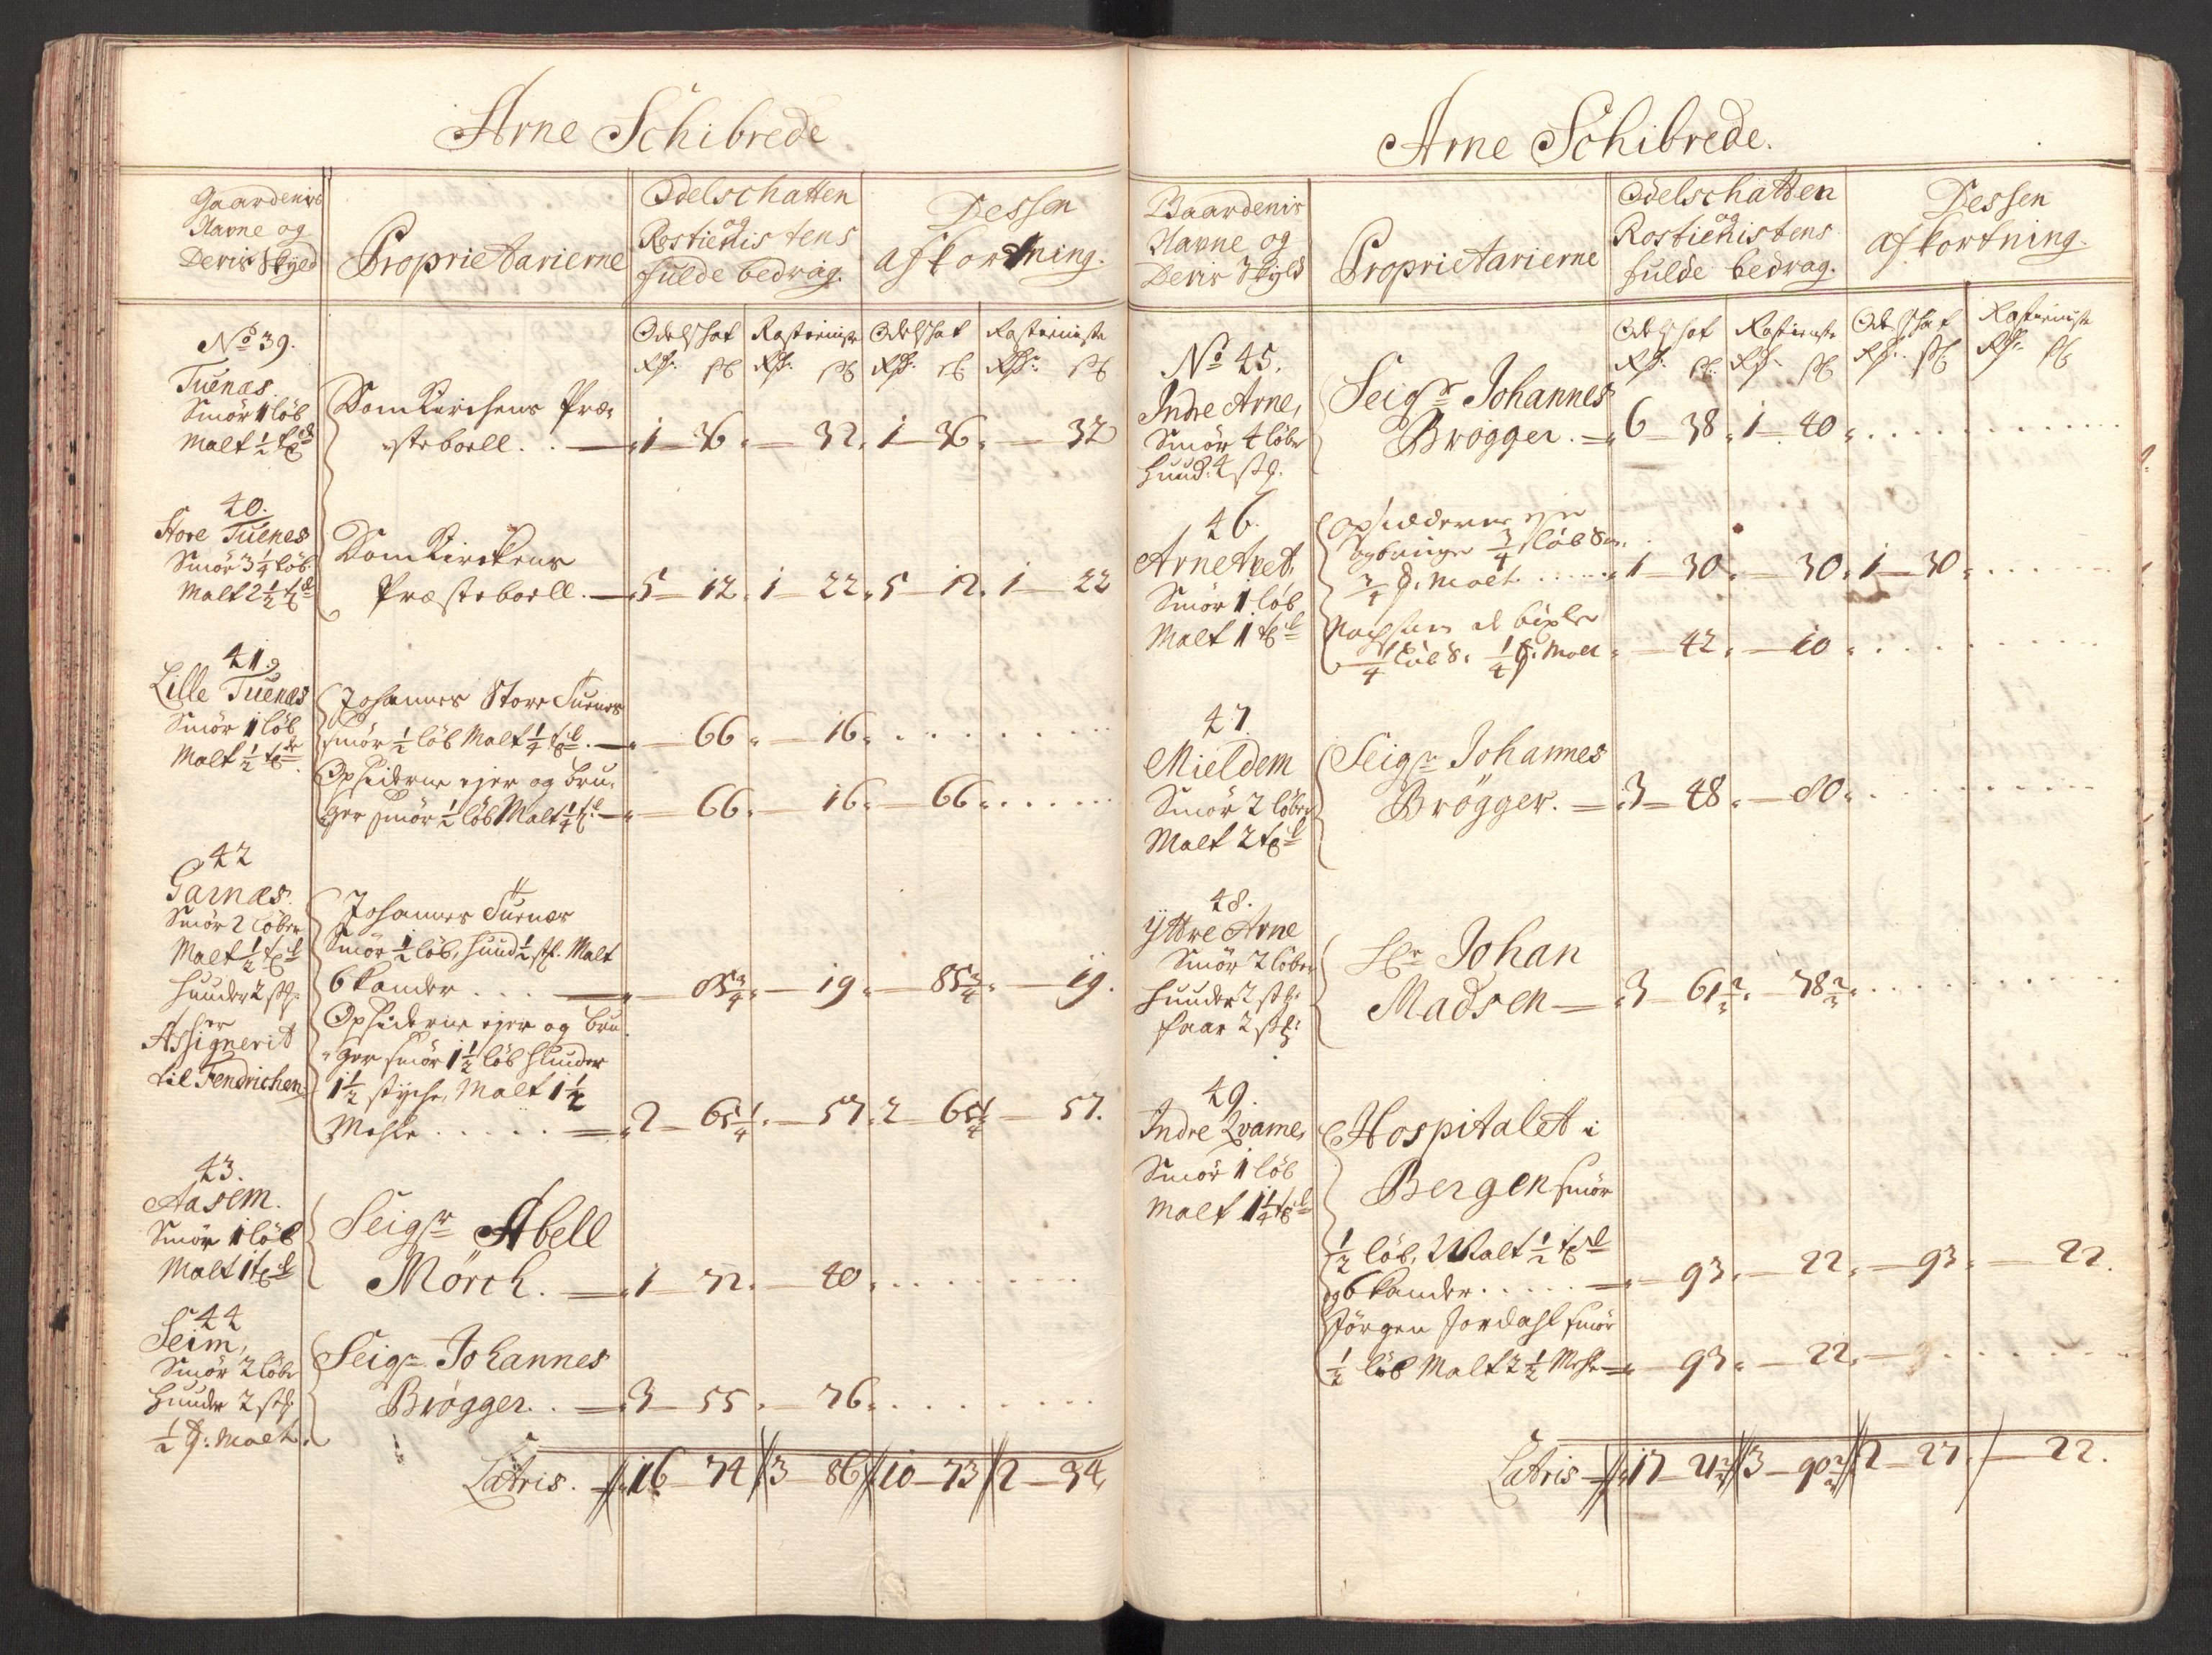 Arne Schibrede
Gaardenis
Navne og
Deris Skyld
Proprietarierne
Odelschatten
og
Rostienistens
fulde bedrag.
Dessen
afkortning.
Odelschat Rostienist Odelschat Rostieniste
Rdr. ß Rdr. ß Rdr. ß Rdr. ß
No 39.
Tuenæs.
Smör 1 löb
Malt 1/2 td
DomKirchens Præ-
steboell . . — 1 — 36. — 32. 1 — 36. — 32
40.
Store Tuenes
Smör 3 1/4 löb.
Malt 2 1/2 td
DomKirckens
Præsteboell. — 5 — 12. 1 — 22. 5 — 12. 1 — 22
41.
Lille Tuenæs
Smör 1 löb
Malt 1/2 td
Johannes Store Tuenes
smör 1/2 löb Malt 1/4 td. — 66. — 16. . . . . . .
Opsiderne ejer og bru-
ger smör 1/2 löb Malt 1/4 td. — 66. — 16. — 66. . . . . .
42
Garnæs.
Smör 2 löber
Malt 1/2 td
huuder 2 st.
er
Assignerit
til Fendrichen.
Johannes Tuenæs
Smör 1/2 löb, huud 1/2 st. Malt
6 kander . . . . — 85 3/4. — 19. — 85 3/4. — 19.
Opsiderne ejer og bru-
ger smör 1 1/2 löb huuder
1 1/2 stycke, Malt 1 1/2
Mehle . . . . . — 2 — 65 1/4. — 57. 2 — 65 1/4 — 57.
43.
Aasem.
Smör 1 löb
Malt 1 td
Seigr Abell
Mörch. — 1 — 72. — 40. . . . . . .
44
Seim,
Smör 2 löber
huuder 2 st.
1/2 td: Malt.
Seigr Johannes
Brögger. . — 3 — 55. — 76. . . . . . .
Latris. — 16 — 74 3 — 86 10 — 73 2 — 34
Arne Schibrede.
Gaardenis
Navne og
Deris Skyld
Proprietarierne
Odelschatten
og
Rostienistens
fulde bedrag.
Dessen
afkortning.
Odelschat Rostieniste Odelschat Rostieniste
Rdr. ß. Rdr. ß Rdr. ß Rdr. ß
No 45.
Indre Arne,
Smör 4 löber
huud: 4 st.
Seigr Johannes
Brögger. — 6 — 38. 1 — 40. . . . . . . .
46.
Arne Avet,
Smör 1 löb
Malt 1 td
Opsidderne ejer
og bruger 3/4 löb S.
3/4 td. Malt . . . . . 1 — 30. — 30. 1 — 30. . . . . .
1/4 löb S. 1/4 td. Malt. — 42. — 10. . . . .
47.
Mieldem
Smör 2 löber
Malt 2 td
Seigr Johannes
Brögger. — 3 — 48. — 80. . . . . . . .
48.
Yttre Arne
Smör 2 löber
huuder 2 st.
faar 2 st:
Hr Johan
Madsen — 3 — 61 2/3. — 78 2/3. . . . . . .
49.
Indre Qvame,
Smör 1 löb
Malt 1 1/4 td
Hospitalet i
Bergen smör
1/2 löb, Malt 1/2 td
og 6 kander . . . . . — 93. — 22. — 93. — 22.
Jörgen Jordahl smör
1/2 löb Malt 2 1/2 Mehle — 93. — 22. . . . .
Latris — 17 — 21 2/3 3 — 90 2/3 2 — 27. — 22.